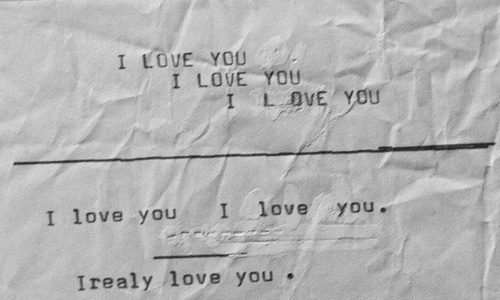 I LOVE YOU
I LOVE YOU
I L OVE YOU
I love you I love you.
Irealy love you .